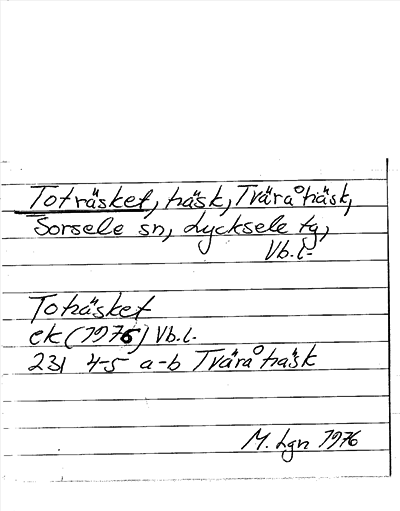 Toträsket, träsk, Tväråträsk,
Sorsele sn, Lycksele tg,
Vb.l.
Toträsket
ek (1976) Vb.l.
231 4-5 a-b Tväråträsk
M. Lgn 1976